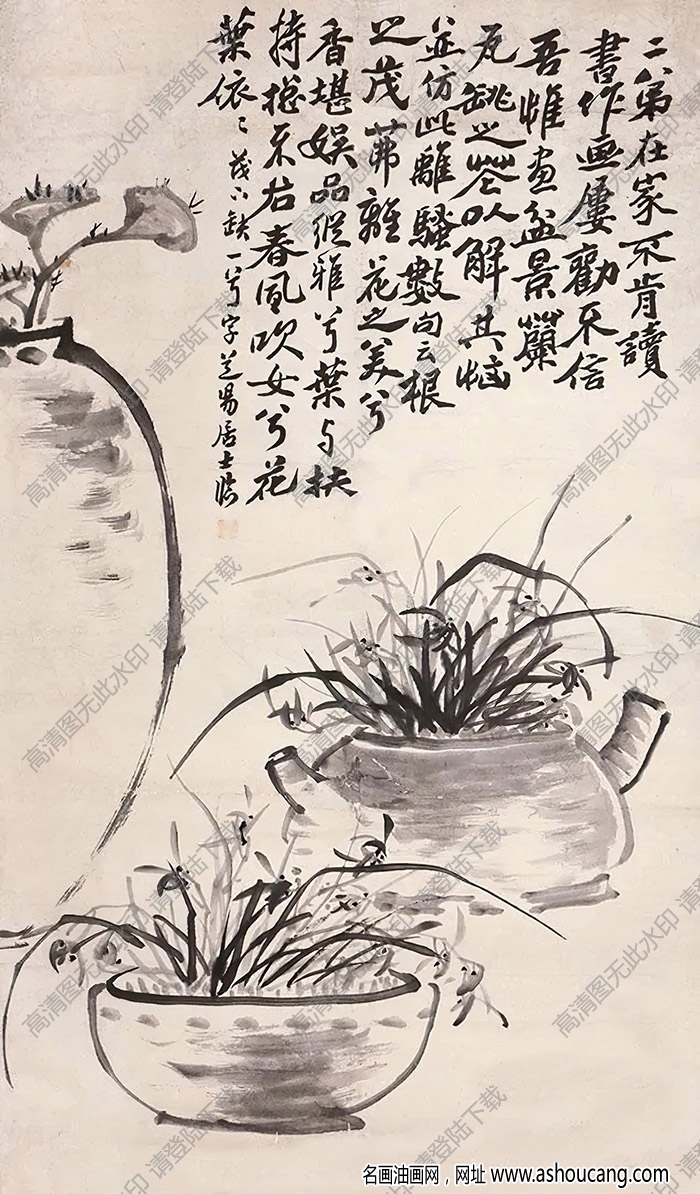 二弟在家不肯讀
書作画屢勸不信
吾惟畫盆景蘭
瓦缽之莖以解其惱
並仿此離騷數句云根
之茂茀離花之美兮
香堪娛品縱雅兮葉与扶
持㧾不右春風吹女兮花
葉依〻茂下缺一兮字芝昜居士临
高清图无此水印 请登陆下载
名画油画网，网址 www.ashoucang.com